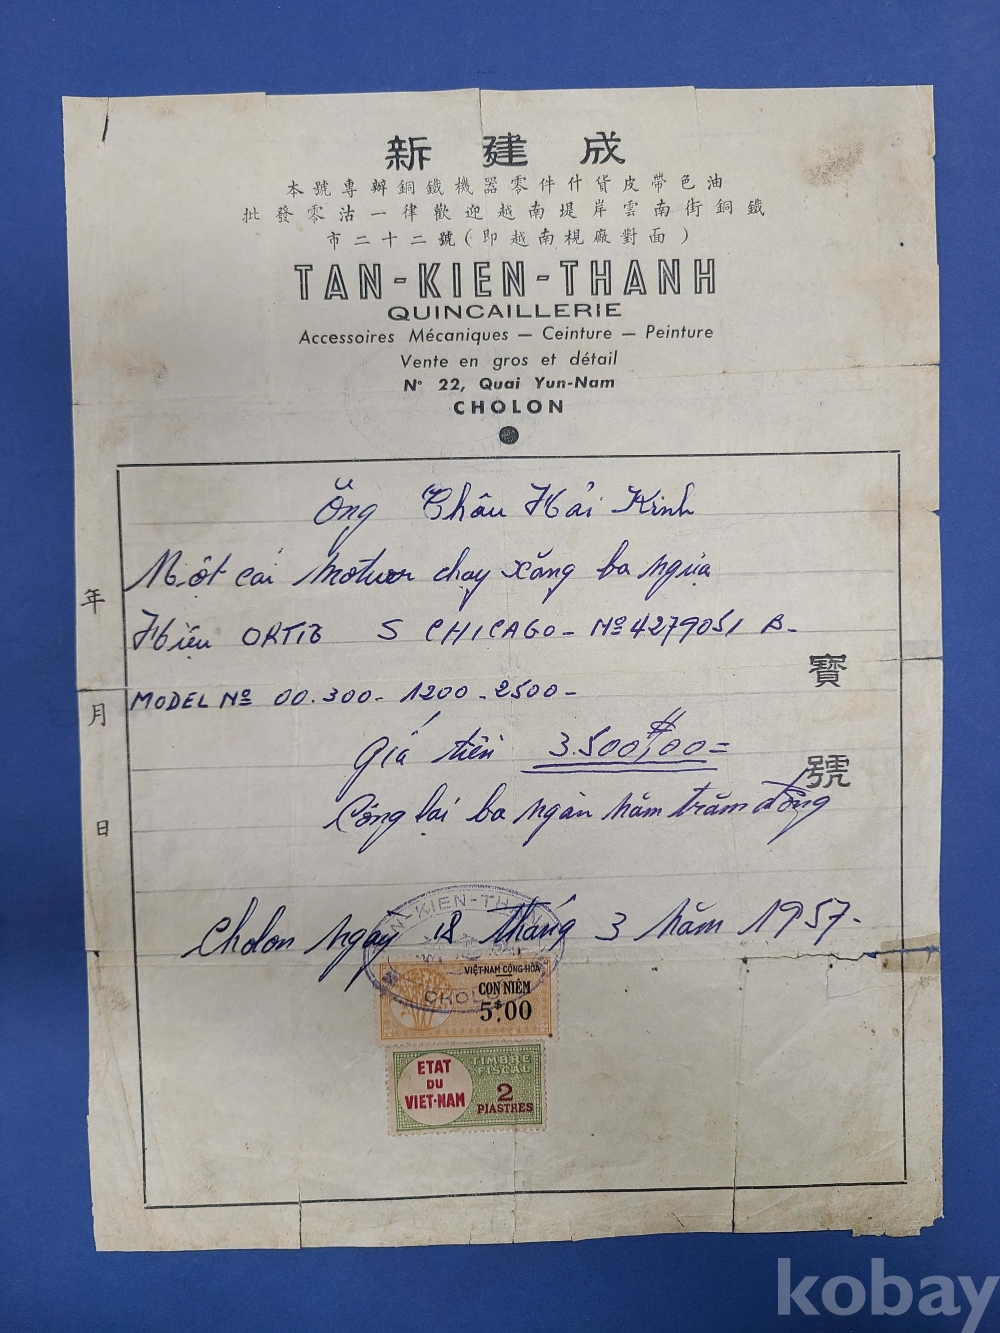 新建成
本號專辦銅鐵機器零件什貨皮帶色油
批發零沽一律歡迎越南堤岸雲南街銅鐵
市二十二號(即越南梘廠對面)
TAN-KIEN-THANH
QUINCAILLERIE
Accessoires Mécaniques — Ceinture — Peinture
Vente en gros et détail
N° 22, Quai Yun-Nam
CHOLON
Ông Châu Hải Kinh
Một cái moteur chạy xăng ba ngựa
Hiệu S CHICAGO - Nº 4279051 B -
MODEL Nº 00.300 - 1200 - 2500 -
Giá tiền 3.500$00 =
Cộng lại ba ngàn năm trăm đồng
Cholon ngày 18 tháng 3 năm 1957 -
年
月
日
寶
號
TAN-KIEN-THANH
CHOLON
VIỆT-NAM CỘNG-HÒA
CON NIÊM
5$00
ETAT
DU
VIET-NAM
TIMBRE
FISCAL
2
PIASTRES
kobay